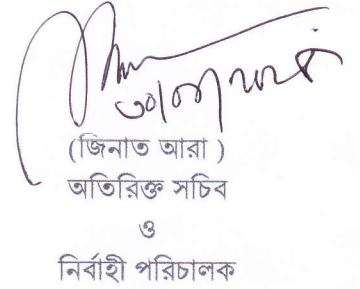 (জিনাত আরা )
অতিরিক্ত সচিব
ও
নির্বাহী পরিচালক